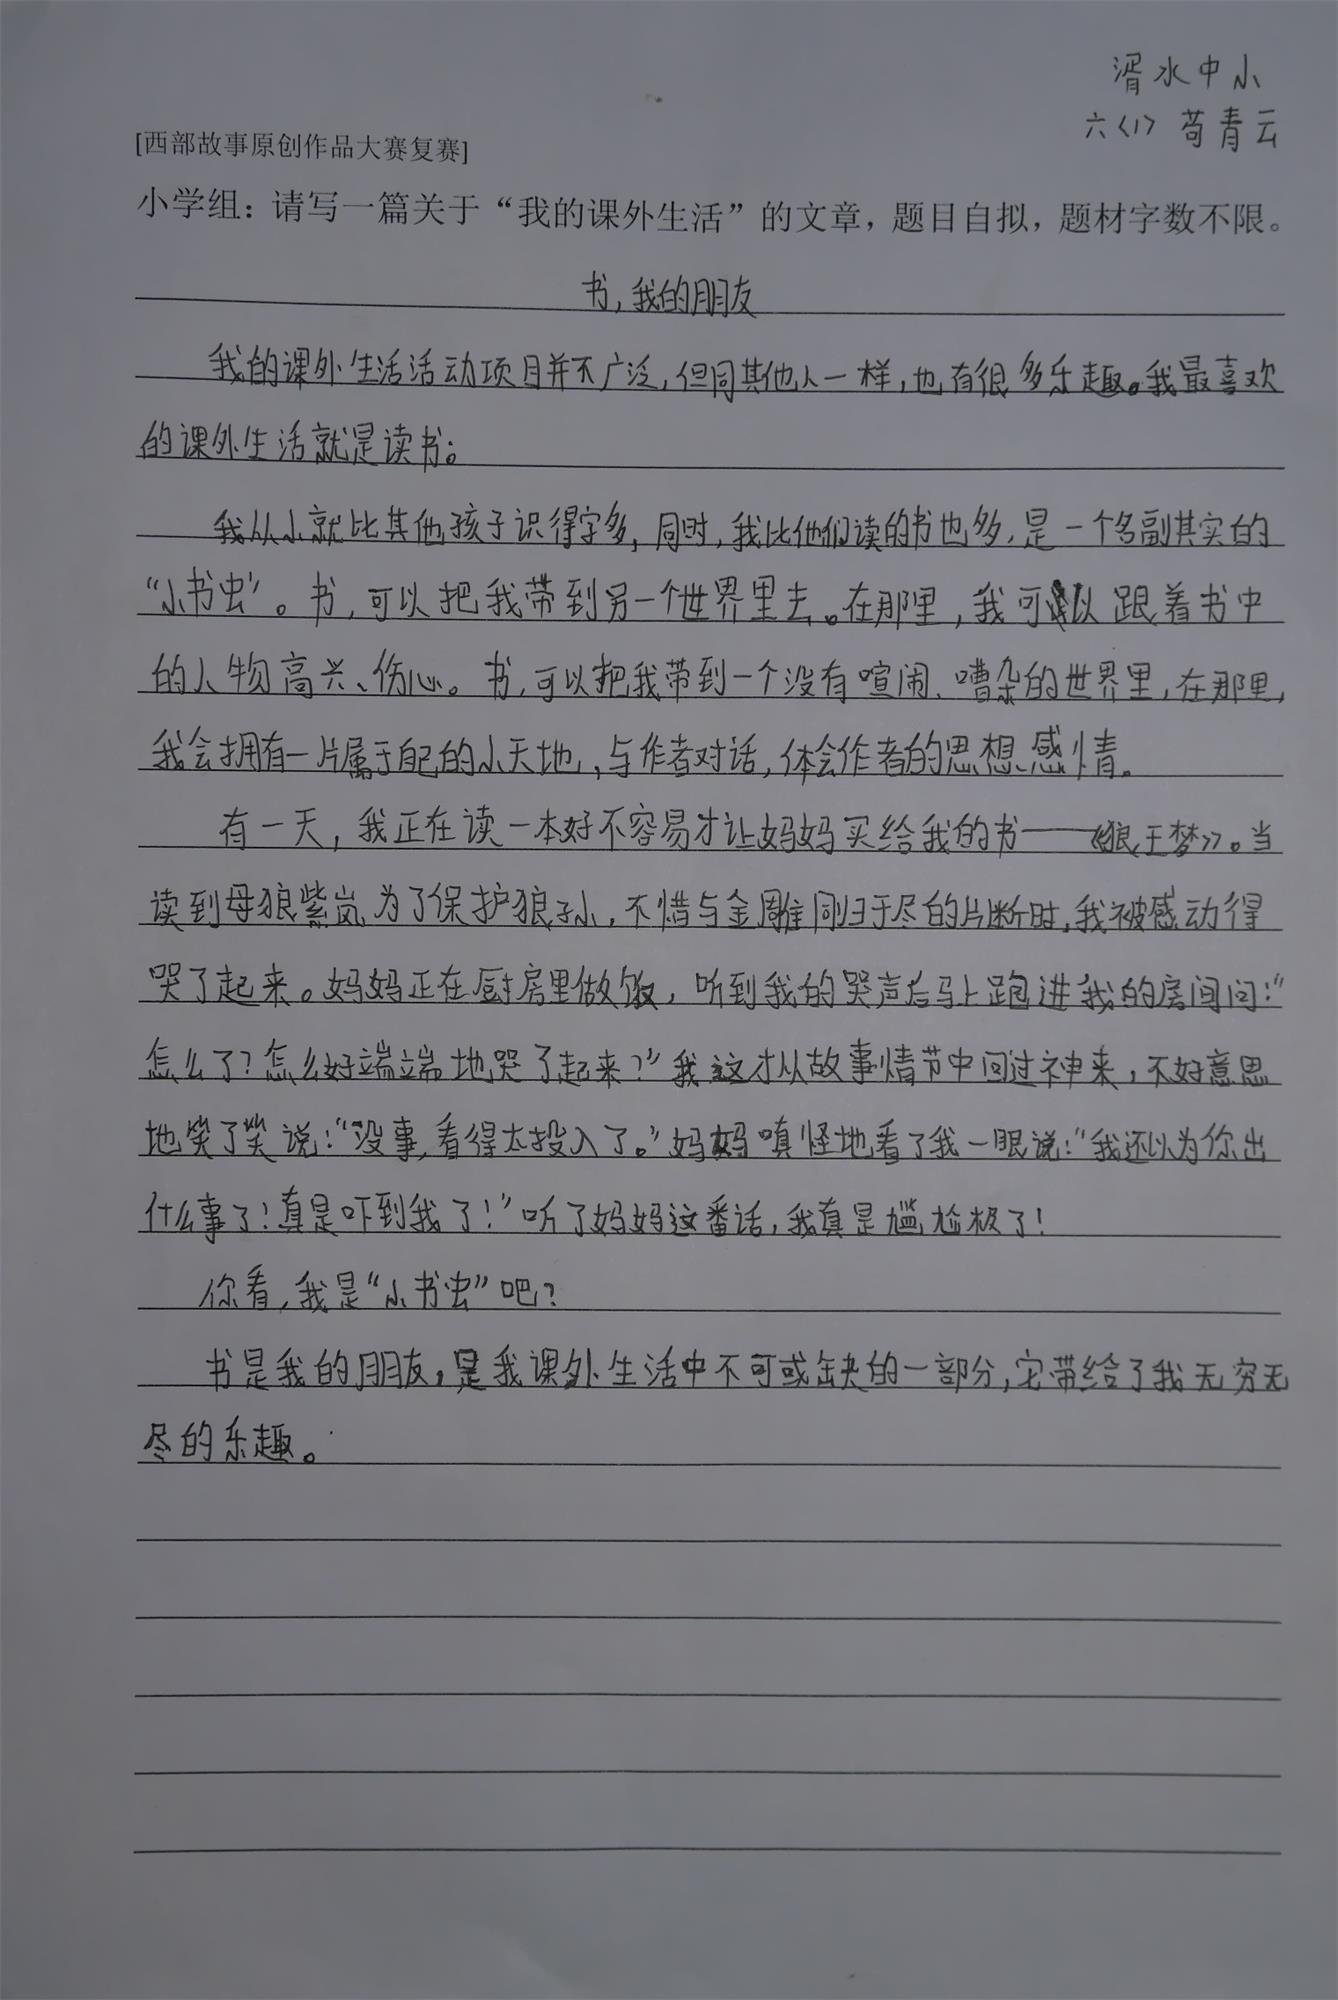 湑水中小
六<1> 苟青云
[西部故事原创作品大赛复赛]
小学组：请写一篇关于“我的课外生活”的文章，题目自拟，题材字数不限。
书，我的朋友
我的课外生活活动项目并不广泛，但同其他人一样，也有很多乐趣。我最喜欢
的课外生活就是读书。
我从小就比其他孩子识得字多，同时，我比他们读的书也多，是一个名副其实的
“小书虫”。书，可以把我带到另一个世界里去。在那里，我可以跟着书中
的人物高兴、伤心。书，可以把我带到一个没有喧闹、嘈杂的世界里，在那里，
我会拥有一片属于自己的小天地，与作者对话，体会作者的思想感情。
有一天，我正在读一本好不容易才让妈妈买给我的书——《狼王梦》。当
读到母狼紫岚为了保护狼孙，不惜与金雕同归于尽的片断时，我被感动得
哭了起来。妈妈正在厨房里做饭，听到我的哭声后马上跑进我的房间问：“
怎么了？怎么好端端地哭了起来？”我这才从故事情节中回过神来，不好意思
地笑了笑说：“没事，看得太投入了。”妈妈嗔怪地看了我一眼说：“我还以为你出
什么事了！真是吓到我了！”听了妈妈这番话，我真是尴尬极了！
你看，我是“小书虫”吧？
书是我的朋友，是我课外生活中不可或缺的一部分，它带给了我无穷无
尽的乐趣。